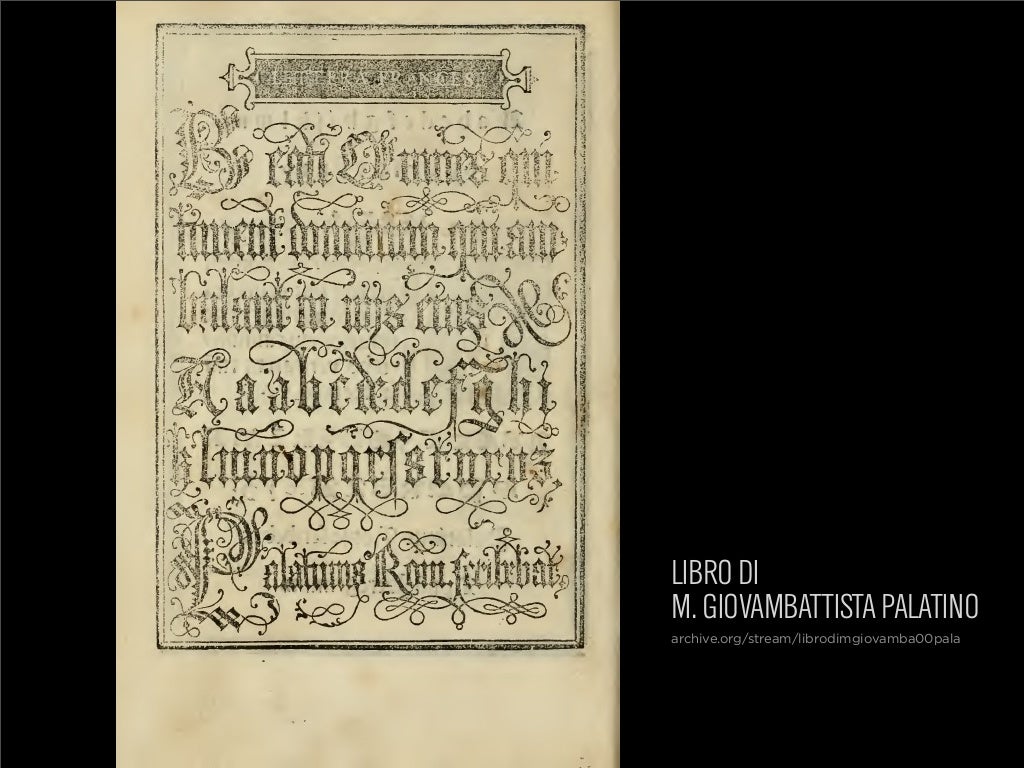 LETTERA FRANCESE
Beati Omnes qui
timent dominum qui am-
bulant in viis eius
A a a b c d d e f g h i
k l m n o p q r ſ s t u x v z
Palatinus Rom. scribebat
LIBRO DI
M. GIOVAMBATTISTA PALATINO
archive.org/stream/librodimgiovamba00pala